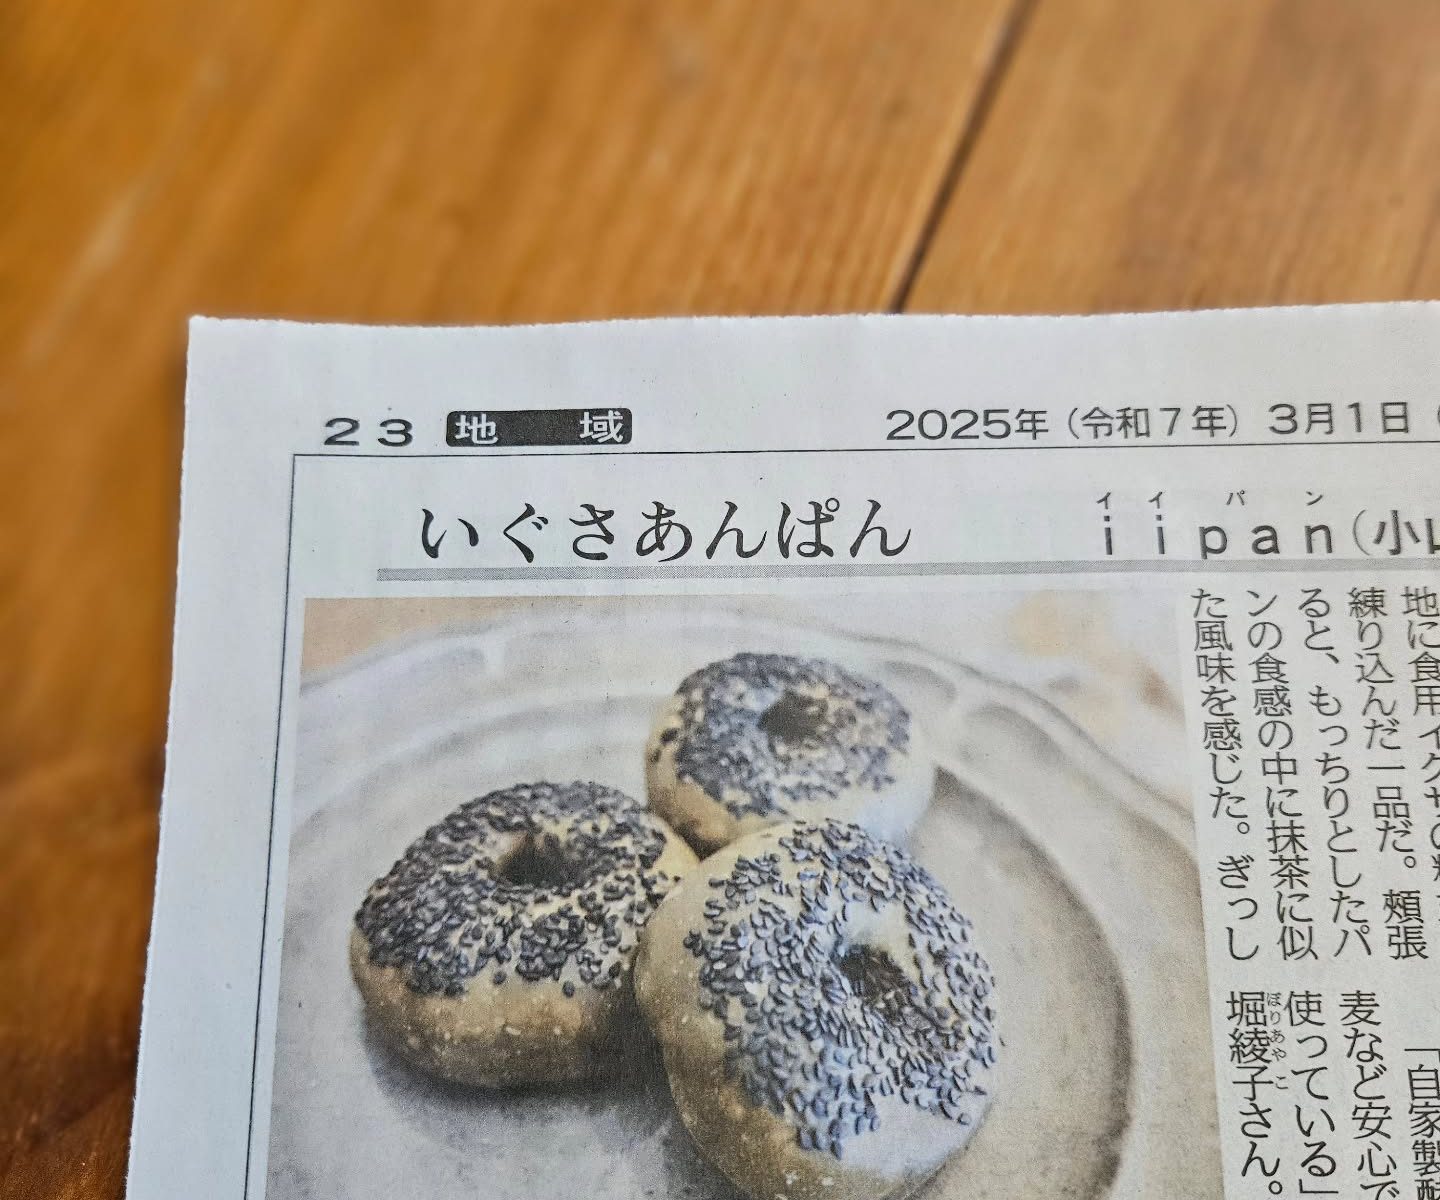 23 地域
2025年(令和7年)3月1日(
いぐさあんぱん
イイパン
iipan(小山
地に食用イグサの粉
練り込んだ一品だ。頬張
ると、もっちりとしたパ
ンの食感の中に抹茶に似
た風味を感じた。ぎっし
「自家製酵
麦など安心で
使っている」
ぼりあやこ
堀綾子さん。